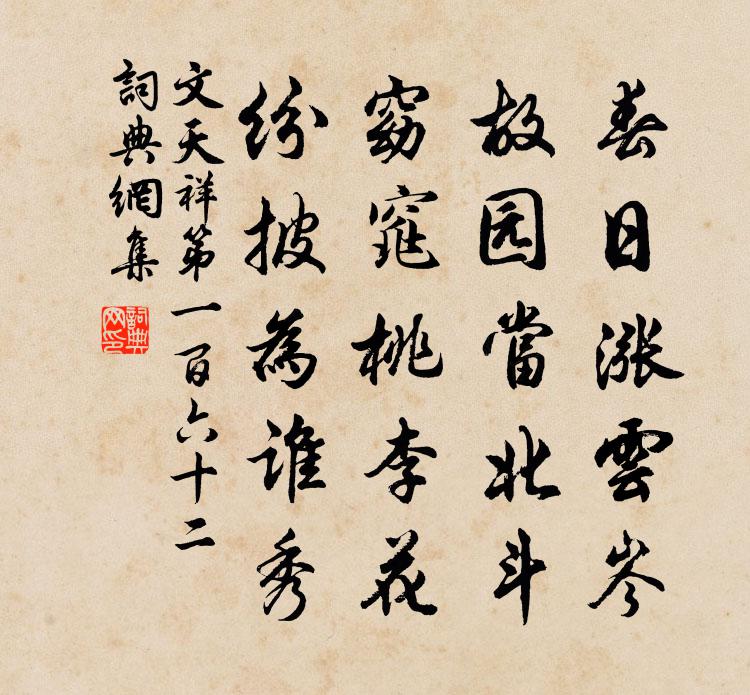 春日漲雲岑
故园當北斗
窈窕桃李花
紛披為誰秀
文天祥第一百六十二
詞典網集
詞典网印